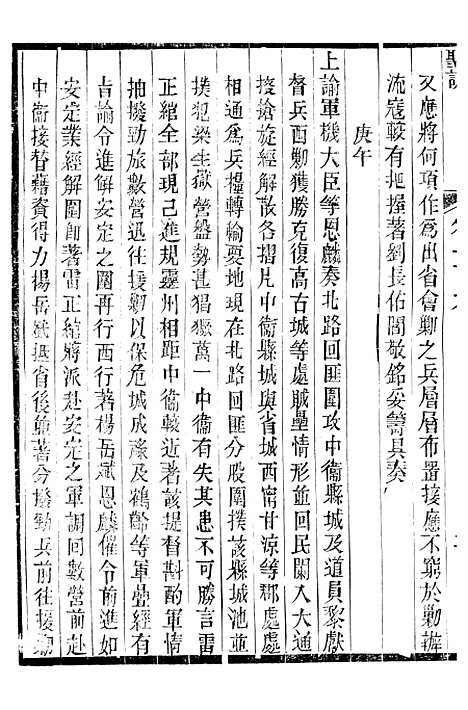 聖訓
又應將何項作為出省會勦之兵層層布置接應不窮於勦辦
流寇較有把握著劉長佑閻敬銘妥籌具奏
庚午
上諭軍機大臣等恩麟奏北路回匪圍攻中衞縣城及道員黎獻
督兵西勦獲勝克復高古城等處賊壘情形並回民闌入大通
接搶旋經解散各摺片中衞縣城與省城西甯甘涼等郡處處
相通為兵糧轉輸要地現在北路回匪分股圍撲該縣城池並
撲犯梁生嶽營盤勢甚猖獗萬一中衞有失其患不可勝言雷
正綰全部現已進規靈州相距中衞較近著該提督斟酌軍情
抽撥勁旅數營迅往援勦以保危城成瑞及鶴齡等軍疊經有
旨諭令進解安定之圍再行西行著楊岳斌恩麟催令前進如
安定業經解圍即著雷正綰將派赴安定之軍調回數營前赴
中衞接替藉資得力楊岳斌抵省後並著分撥勁兵前往援勦